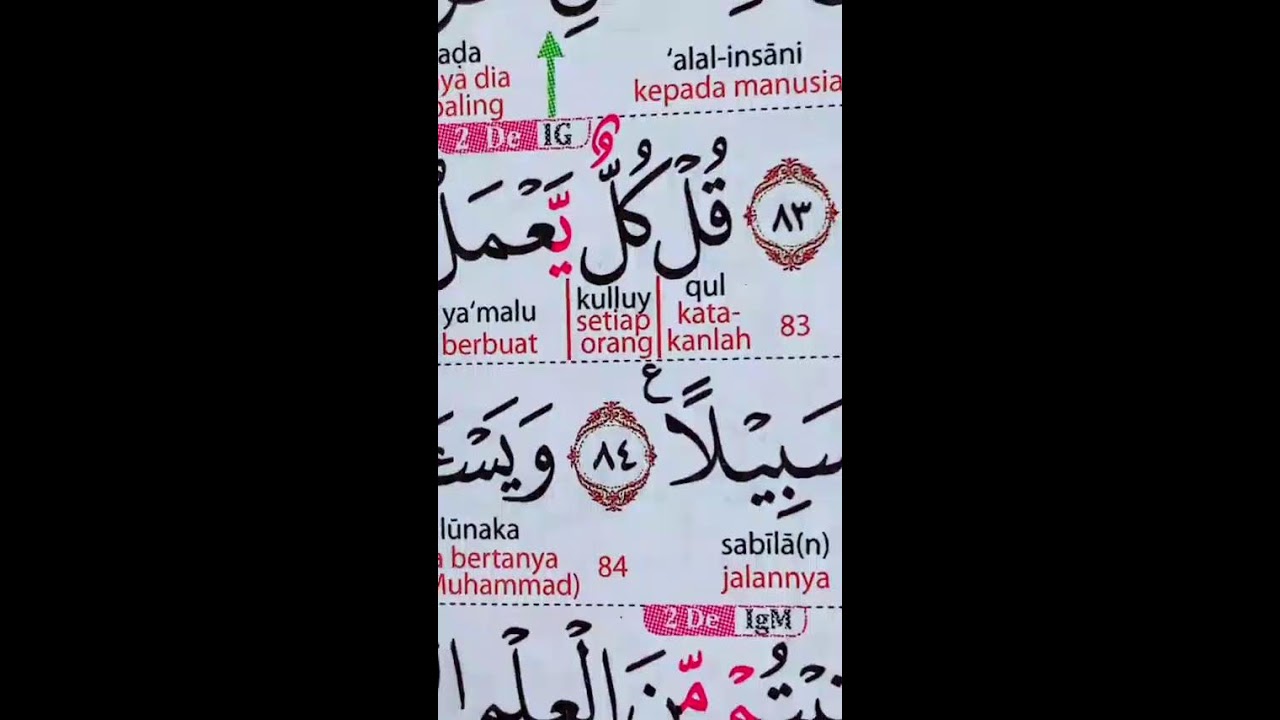 aḍa 'alal-insāni
ya dia kepada manusia
paling
2 De IG
٨٣ قُلْ كُلٌّ يَّعْمَلُ
ya'malu kulluy qul
berbuat setiap orang kata-kanlah 83
سَبِيْلًا ࣖ ٨٤ وَيَسْـَٔ
lūnaka sabīlā(n)
bertanya 84 jalannya
Muhammad)
2 De IgM
مِّنَ الْعِلْمِ